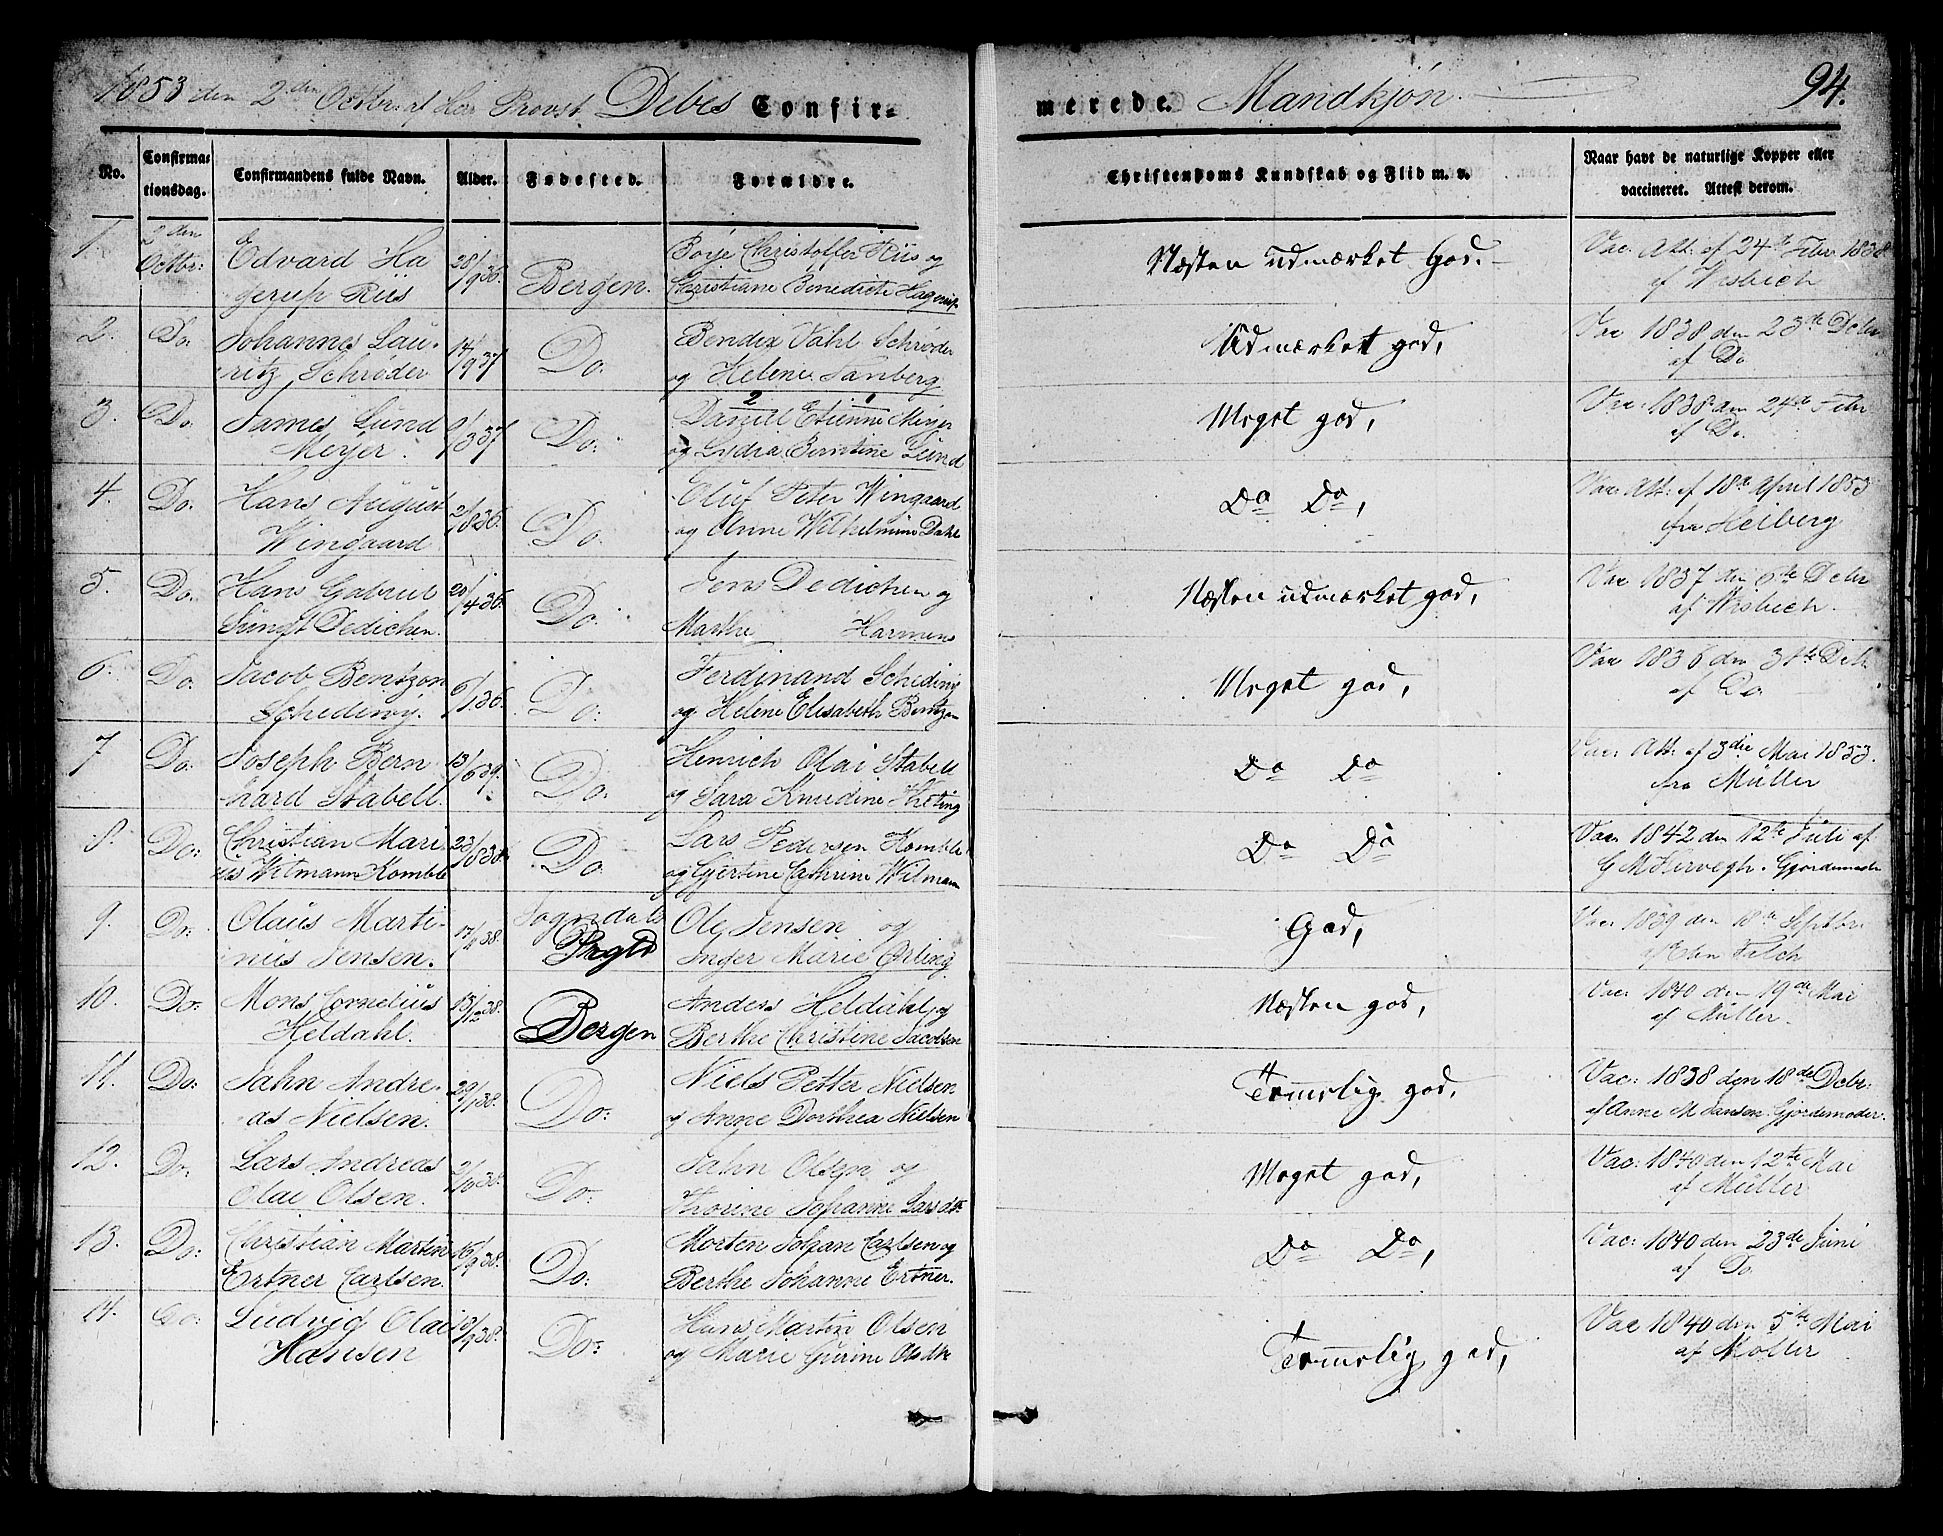 1853 den 2den Octbr: af Herr Provst Debes Confir-
merede. Mandkjøn. 94.
No. Confirmationsdag. Confirmandens fulde Navn. Alder. Fødested. Forældre. Christendoms Kundskab og Flid m. v. Naar havt de naturlige Kopper eller vaccineret. Attest derom.
1. 2den Edvard Ha 28/9 36. Bergen. Børje Christoffer Riis og Næsten udmærket God. Vac. Att: af 24de Febr 1838
Octbr: gerup Riis Christiane Benedicte Hagerup af Wisbech
2. Do. Johannes Lau- 14/9 37 Do. Bendix Vahl Schrøder Udmærket god, Vac 1838 den 23de Debr
ritz Schrøder og Helene Sanberg af Do
3. Do. James Lund 9/3 37 Do. Daniel Etienne Meyer Meget god, Vac: 1838 den 24de Febr
Meyer. og Lydia Berntine Lund af Do.
4. Do. Hans August 2/8 36. Do. Oluf Peter Wingaard Do Do, Vac. Att: af 18de April 1853
Wingaard og Anne Wilhelmine Dahl fra Heiberg
5. Do. Hans Gabriel 20/4 36. Do. Jens Dedichen og Næsten udmærket god, Vac 1837 den 6te Debr
Sundt Dedichen. Marthe Harmens af Wisbech.
6. Do. Jacob Bentzon 6/1 36. Do. Ferdinand Scheding Meget god, Vac 1836 den 31te Debr
Scheding. og Helene Elisabeth Bentzon af Do
7 Do. Joseph Bern 13/6 39. Do. Henrich Olai Stabell Do Do Vac. Att: af 3die Mai 1853
hard Stabell. og Sara Knudine Hilting fra Müller
8. Do: Christian Mari 23/8 38. Do. Lars Pedersen Komble Do Do Vac. 1842 den 12te Juli af
us Witmann Komble og Gjertine Cathrine Witmann G M Herwegh. Gjordemoder
9. Do: Olaus Marti- 17/1 38. Sogndals Ole Jensen og God, Vac: 1839 den 18de Septbr.
nus Jensen. Prgld Inger Marie Ørling af Falch
10. Do: Mons Cornelius 13/12 38. Bergen Anders Heldahl og Næsten god, Vac: 1840 den 19de Mai
Heldahl. Berthe Christine Jacobsen af Müller.
11. Do: Jahn Andre- 29/1 38. Do: Niels Petter Nielsen Temmelig god, Vac: 1838 den 18de Debr:
as Nielsen. og Anne Dorthea Nielsen af Anne M Jansen. Gjordemoder.
12. Do. Lars Andreas 2/9 38. Do. Jahn Olsen og Meget god, Vac: 1840 den 12te Mai
Olai Olsen. Thorine Johanne Larsdtr af Müller
13. Do: Christian Martin 16/9 38. Do: Morten Johan Carlsen og Do Do, Vac: 1840 den 23de Juni
Ertner Carlsen. Berthe Johanne Ertner. af Do
14. Do: Ludvig Olai 13/9 38. Do: Hans Martin Olsen Temmelig god, Vac 1840 den 5te Mai
Hansen og Marie Gurine Olsdtr af Müller